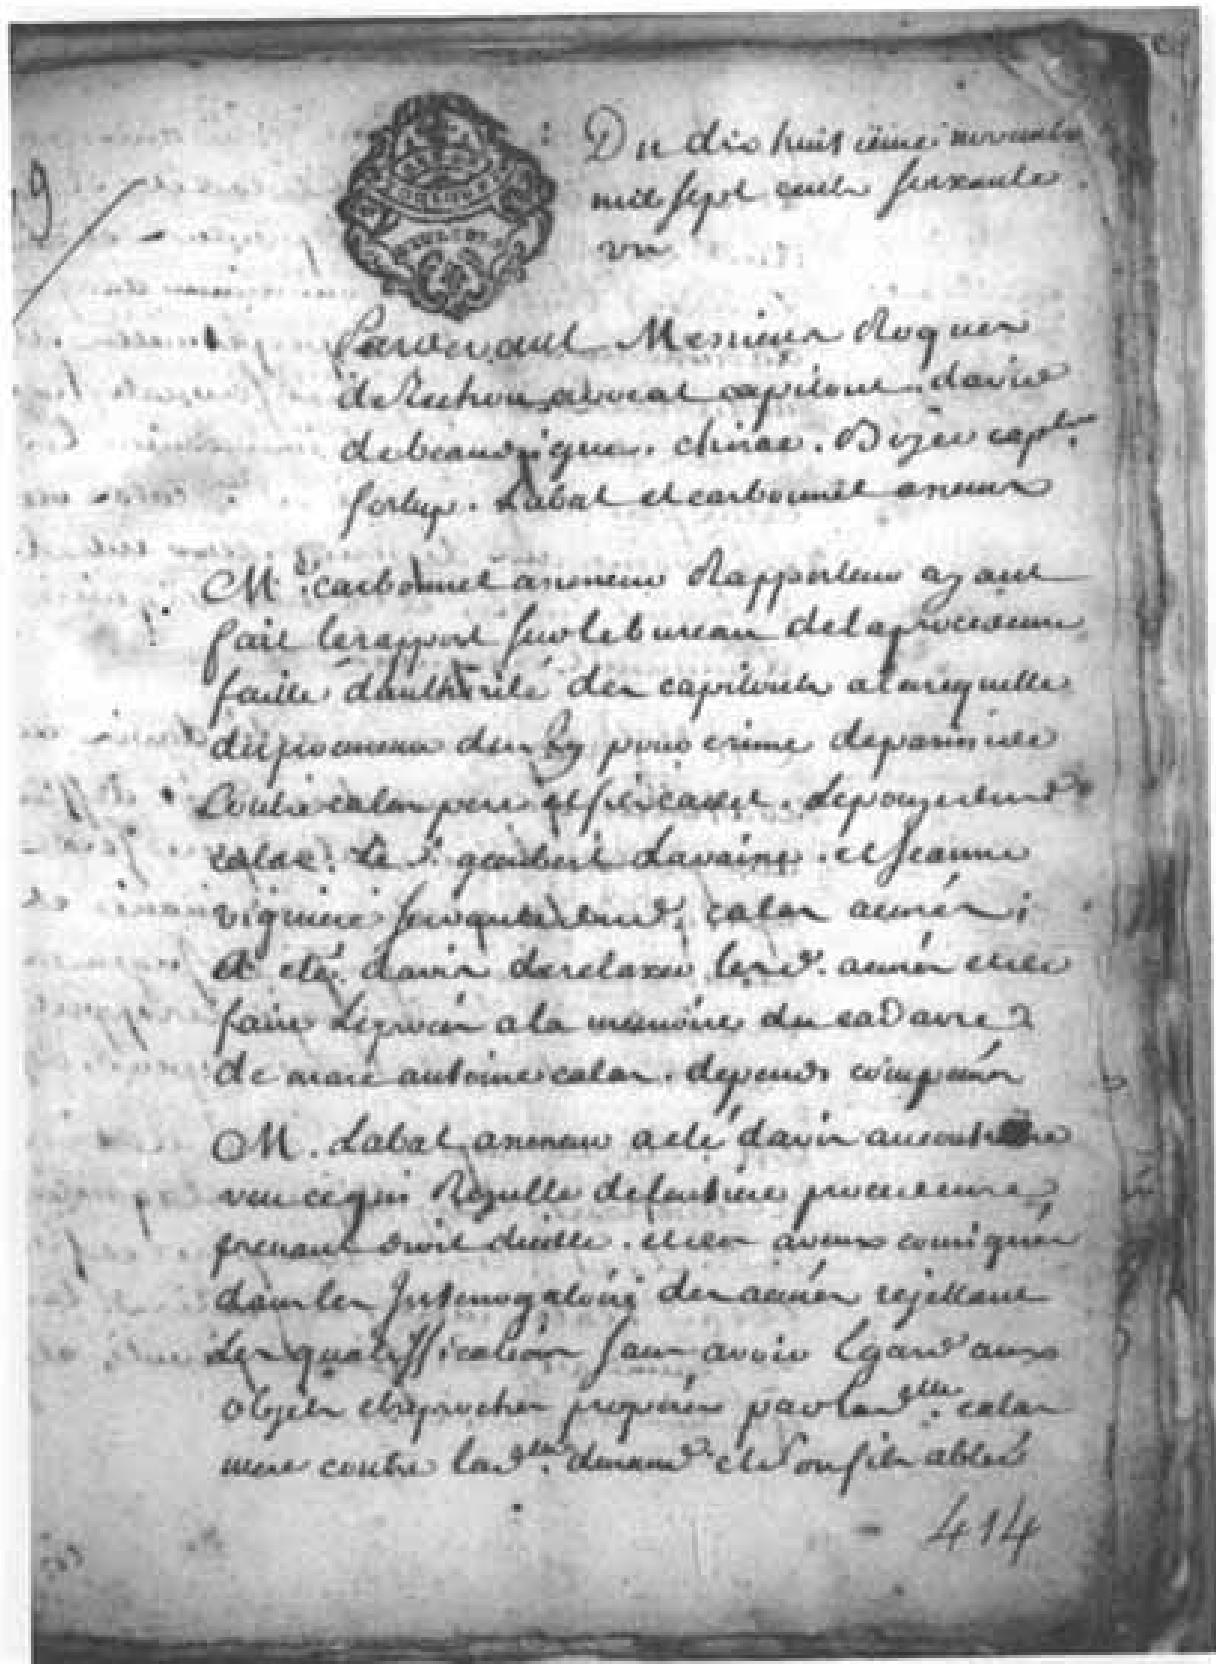 Du dis huit ieme novembre
mil sept cents soixante
un
9
Pardevant Messieurs Roques
de Rechou avocat capitoul. david
de beaudrigue. chirac. Boyer capls.
forlup. Labat et carbonnel asseseurs
Mr. carbonnel assesseur Rapporteur ayant
fait le rapport sur le bureau de la procedeure
faitte d'authorité des capitouls a la requette
du procureur du Roy pour crime de parricide
Contre calas pere et fils cadet.
calas. Le Sr. gaubert Lavaisse. et Jeanne
viguiere servante dud. calas accusés;
A eté d'avis de relaxer lesd. accusés et de
faire Le procés a la memoire du cadavre
de marc antoine calas. depends compensés
M. Labat assesseur a eté d'avis au contraire
veu ce qui Rezulte de l'entiere procedeure
prenant droit d'icelle. et des aveux consignés
dans les Interrogatoire des accusés rejettant
Les qualiffications sans avoir Egard aux
objets et reproches proposés par lad. lle. calas
mere contre lad. lle. durand et son fils abbé
414